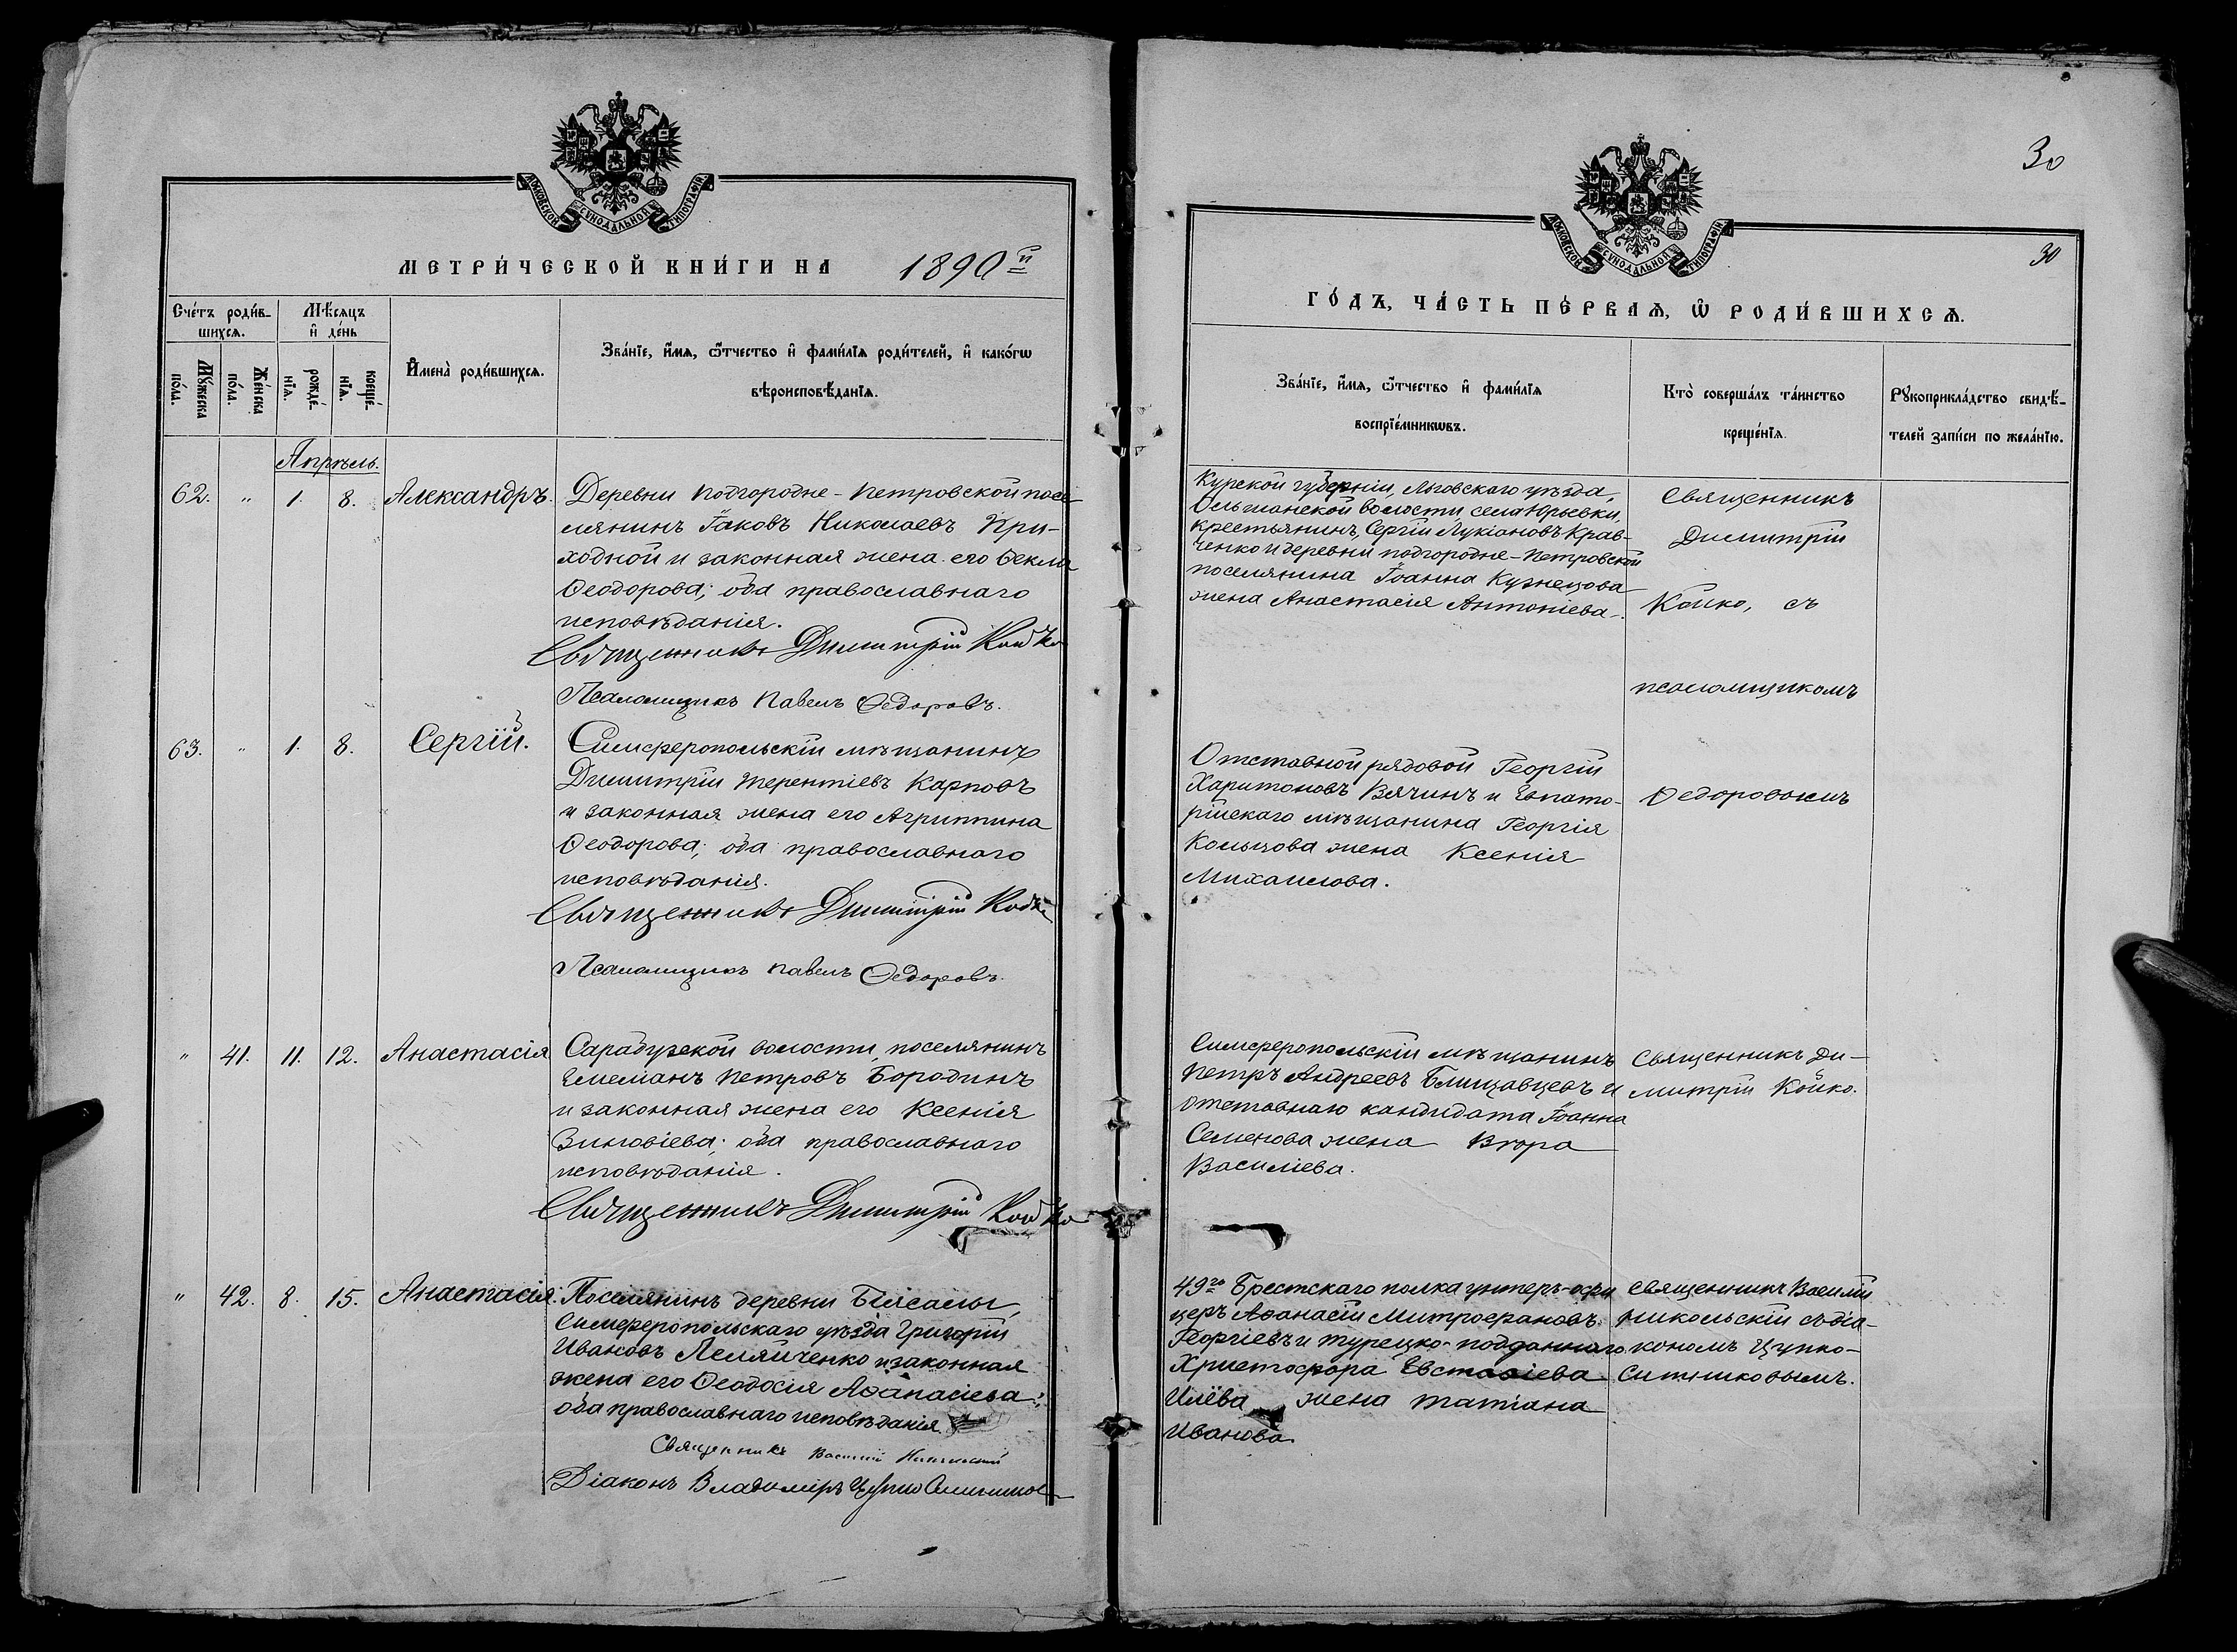 МОСКОВСКОЙ СѴНОДАЛЬНОЙ ТИПОГРАФІИ
МЕТРИ́ЧЕСКОЙ КНИ́ГИ НА 1890й
Сче́тъ роди́в-
шихся.
Мѣ́сяцъ
и҆ де́нь
Мꙋ́жеска
по́ла.
Же́нска
по́ла.
рожде́-
нїѧ.
креще́-
нїѧ.
И҆мена̀ роди́вшихсѧ.
Зва́нїе, и҆́мѧ, ѻ҆́тчество и҆ фами́лїѧ роди́телей, и҆ како́гѡ
вѣроисповѣ́данїѧ.
Апрѣль.
62. " 1. 8. Александръ.
Деревни Подгородне-Петровской посе-
лянинъ Іаковъ Николаевъ При-
ходной и законная жена его Ѳекла
Ѳеодорова; оба православнаго
исповѣданія.
Священникъ Димитрій Койко
Псаломщикъ Павелъ Ѳедоровъ.
63. " 1. 8. Сергій.
Симферопольскій мѣщанинъ
Димитрій Терентіевъ Карповъ
и законная жена его Агриппина
Ѳеодорова; оба православнаго
исповѣданія.
Священникъ Димитрій Койко
Псаломщикъ Павелъ Ѳедоровъ.
" 41. 11. 12. Анастасія
Сарабузской волости, поселянинъ
Емеліанъ Петровъ Бородинъ
и законная жена его Ксенія
Зиновіева; оба православнаго
исповѣданія.
Священникъ Димитрій Койко
" 42. 8. 15. Анастасія.
Поселянинъ деревни
Симферопольскаго уѣзда Григорій
Ивановъ и законная
жена его Ѳеодосія Аѳанасіева;
оба православнаго исповѣданія.
Священникъ Василій Никольскій
Діаконъ Владиміръ Цупко Ситниковъ
30
МОСКОВСКОЙ СѴНОДАЛЬНОЙ ТИПОГРАФІИ
30
ГО́ДЪ, ЧА́СТЬ ПЕ́РВАѦ, Ѡ҆ РОДИ́ВШИХСѦ.
Зва́нїе, и҆́мѧ, ѻ҆́тчество и҆ фами́лїѧ
воспрїе́мникѡвъ.
Кто̀ соверша́лъ та́инство
креще́нїѧ.
Рꙋкоприкла́дство свидѣ́-
телей за́писи по жела́нїю.
Курской губерніи, Льговскаго уѣзда,
Ольшанской волости села Юрьевки,
крестьянинъ Сергій Лукіановъ Крав-
ченко и деревни подгородне-Петровской
поселянина Іоанна Кузнецова
жена Анастасія Антоніева.
Священникъ
Димитрій
Койко, съ
псаломщикомъ
Ѳедоровымъ
Отставной рядовой Георгій
Харитоновъ Вячинъ и Евпато-
рійскаго мѣщанина Георгія
Кольцова жена Ксенія
Михаилова.
Симферопольскій мѣщанинъ
Петръ Андреевъ Блищавцевъ и
отставнаго кандидата Іоанна
Семенова жена Вѣра
Василіева.
Священникъ Ди-
митрій Койко.
49го Брестскаго полка унтеръ-офи
церъ Аѳанасій Митрофановъ
Георгіевъ и турецко-подданнаго
Христофора Евстаѳіева
Иліева жена Татіана
Иванова.
Священникъ Василій
Никольскій съ діа-
кономъ Цупко-
Ситниковымъ.